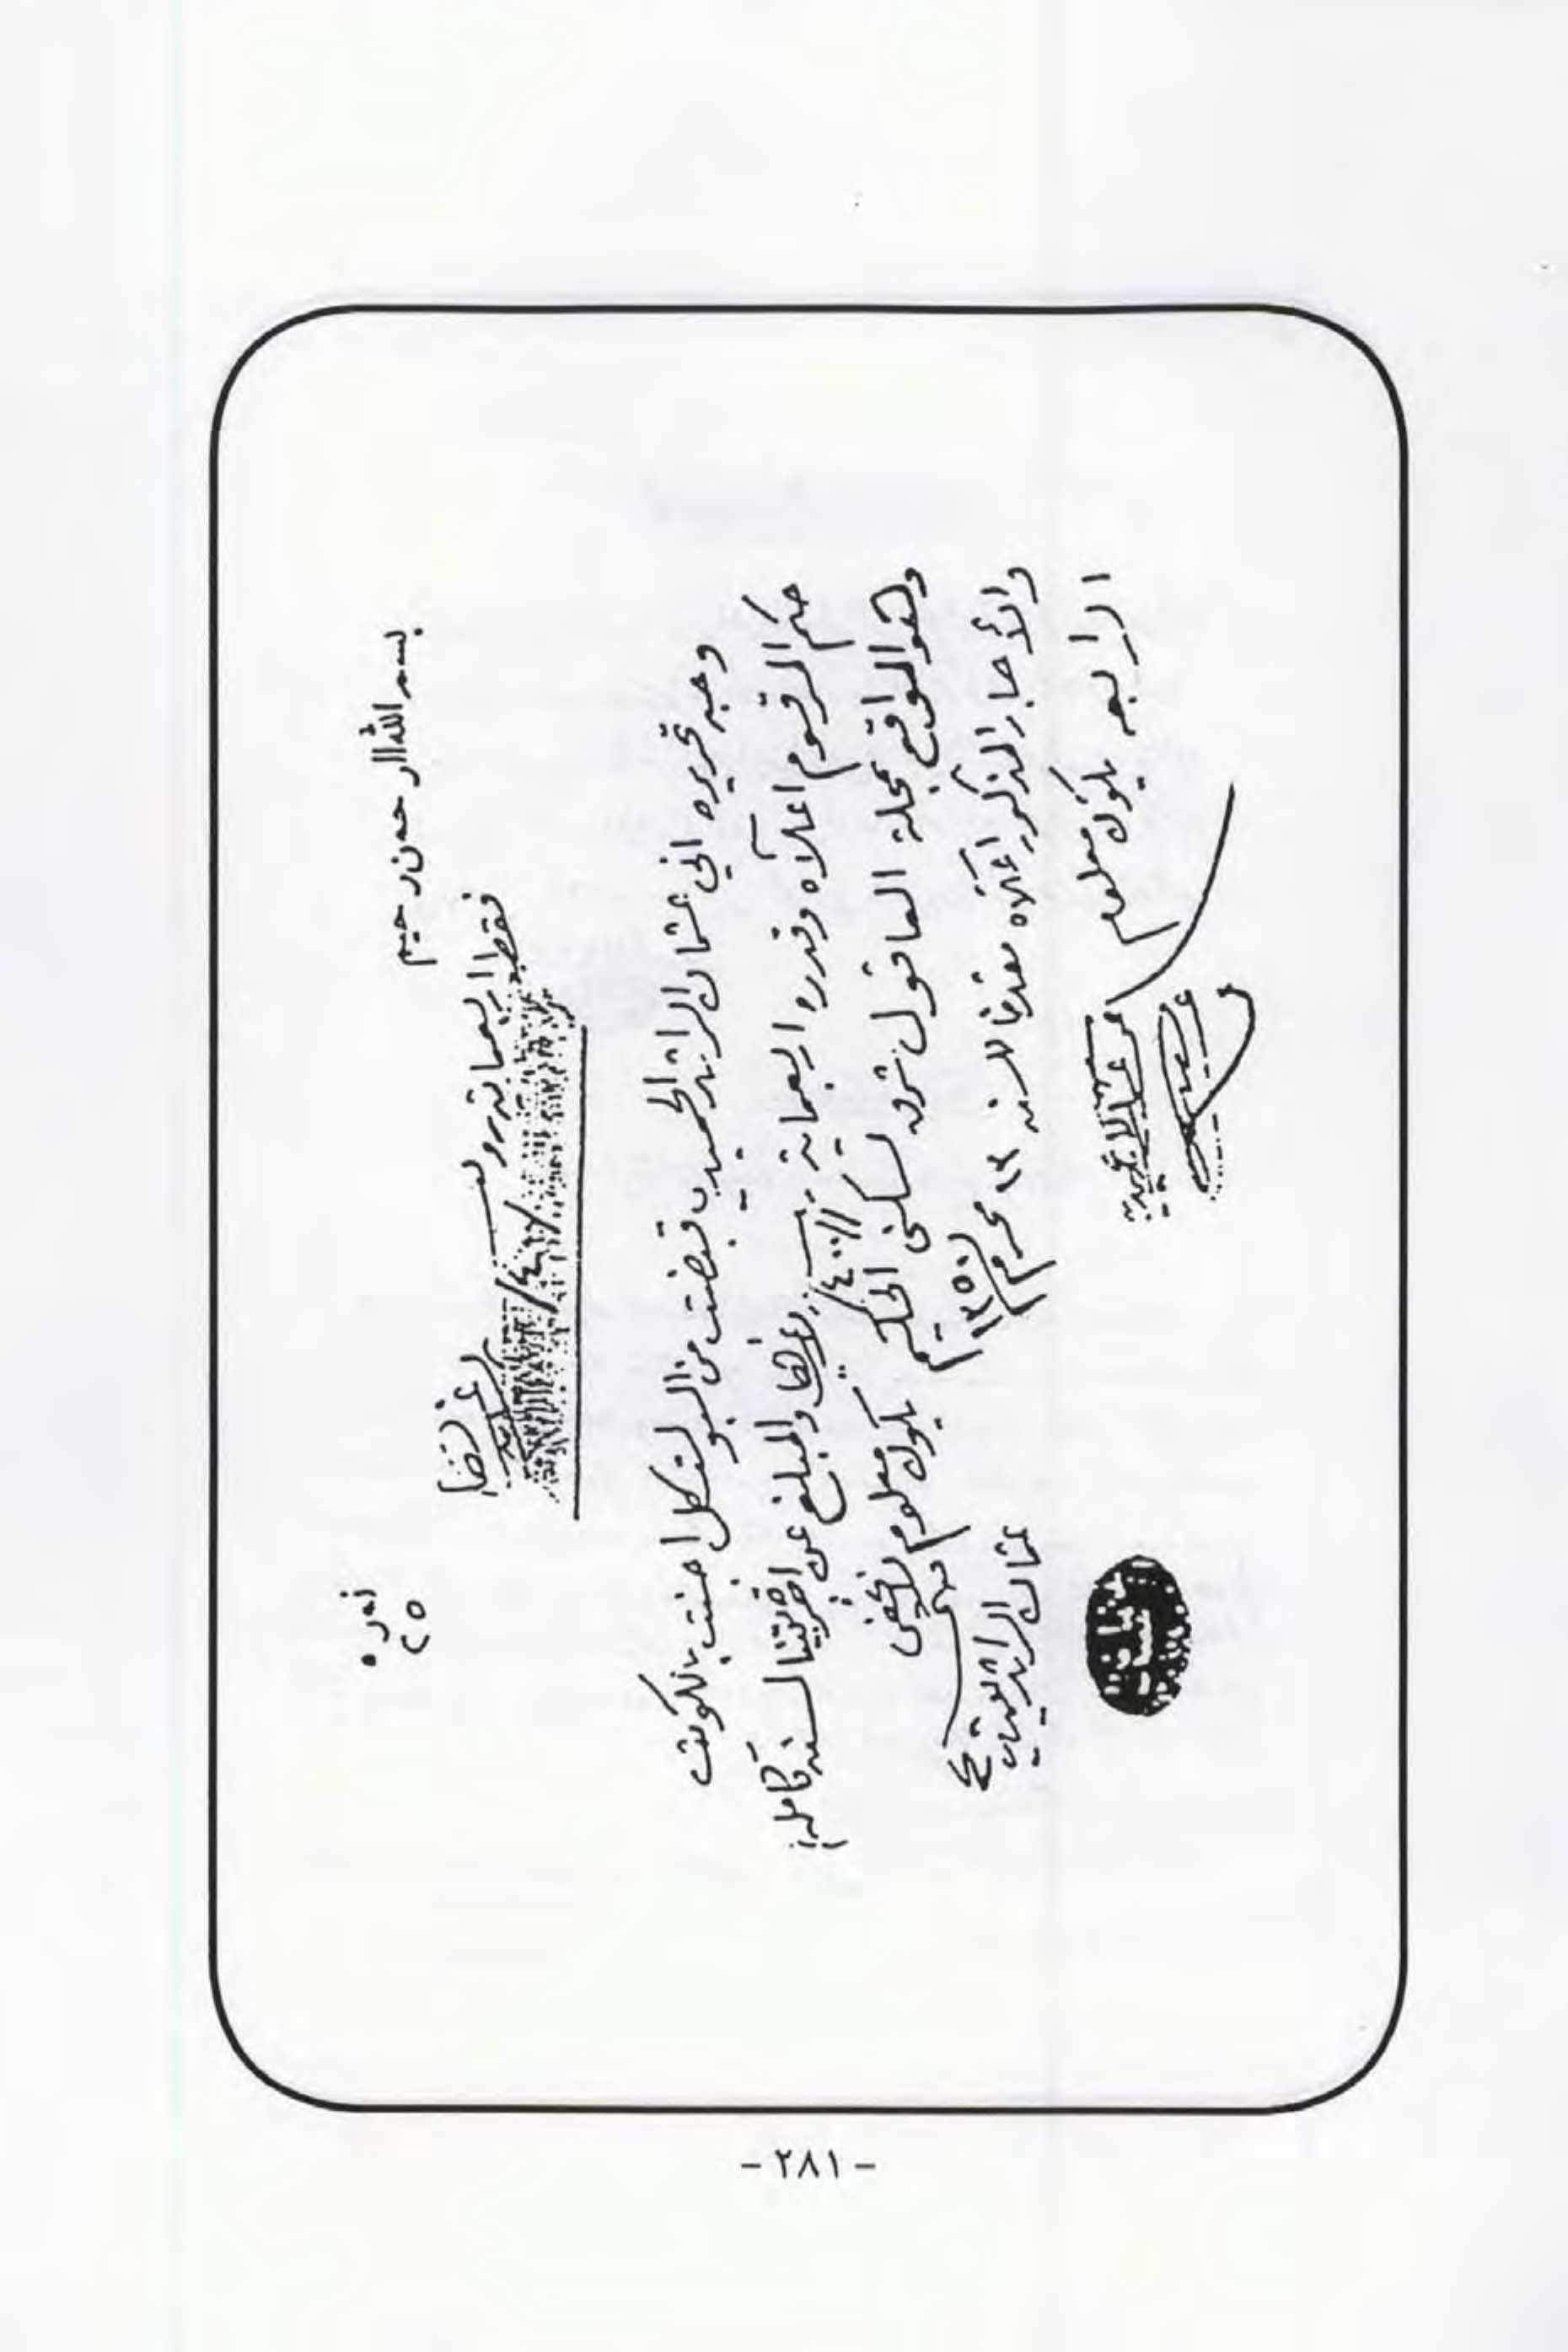 بسم الله الرحمن رحيم
نمره
٢٥
فقط اربعماية روبيه لا غير
وجه تحريره اني عثمان الراشد الحميدي قبضت من البو لتكل اجنت بالكويت
حكم المرقوم اعلاه وقدره اربعماية روبيه /٤٠٠ لا غيرها والمبلغ عن اجرة بيتنا لسنه كامله
وهو الواقع بمحلة العاقول شرق لسكنى الحكيم يكون معلوم
والأجار المذكور اعلاه مقدما للسنه ١٢ محرم ١٣٥٠
الرابعه يكون معلوم
عثمان الراشد الحميدي
- ٢٨١ -